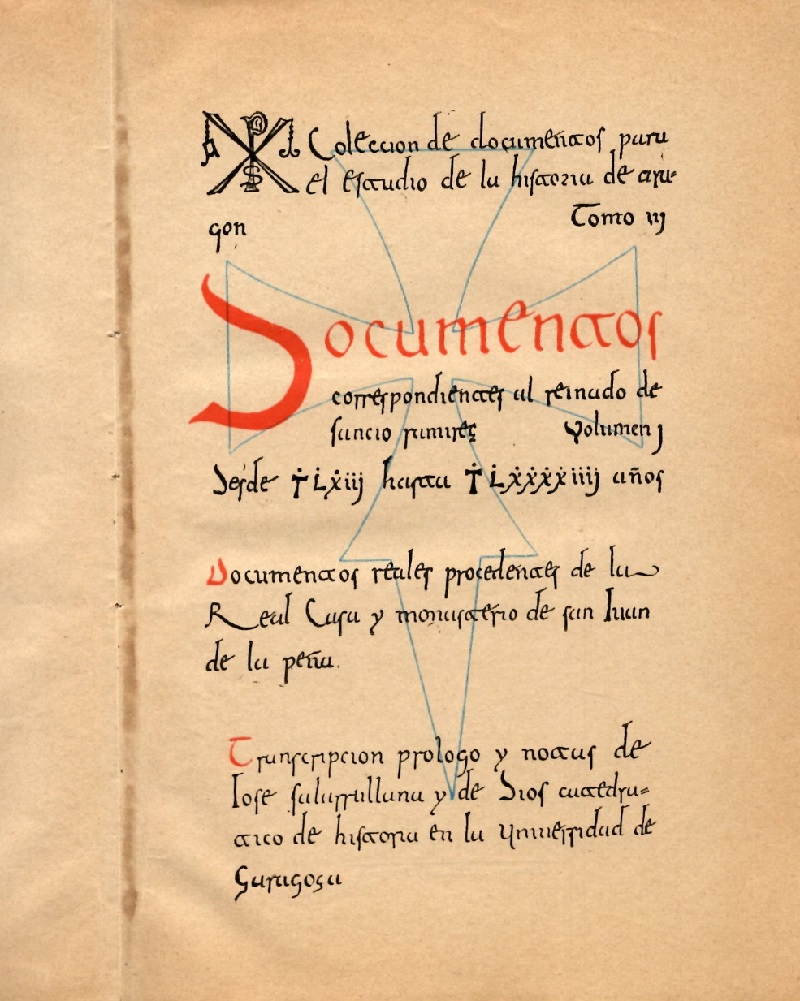 Coleccion de documentos para
el estudio de la historia de ara-
gon Tomo iij
Documentos
correspondientes al reinado de
sancio ramirez Volumen j
Desde Ṫ L̇ẋiij hasta Ṫ L̇ẋẋẋẋiiij años
Documentos reales procedentes de la
Real Casa y monasterio de san Iuan
de la peña.
Transcripcion prologo y notas de
Iose salarrullana y de Dios catedra=
tico de historia en la Universidad de
Garagoça